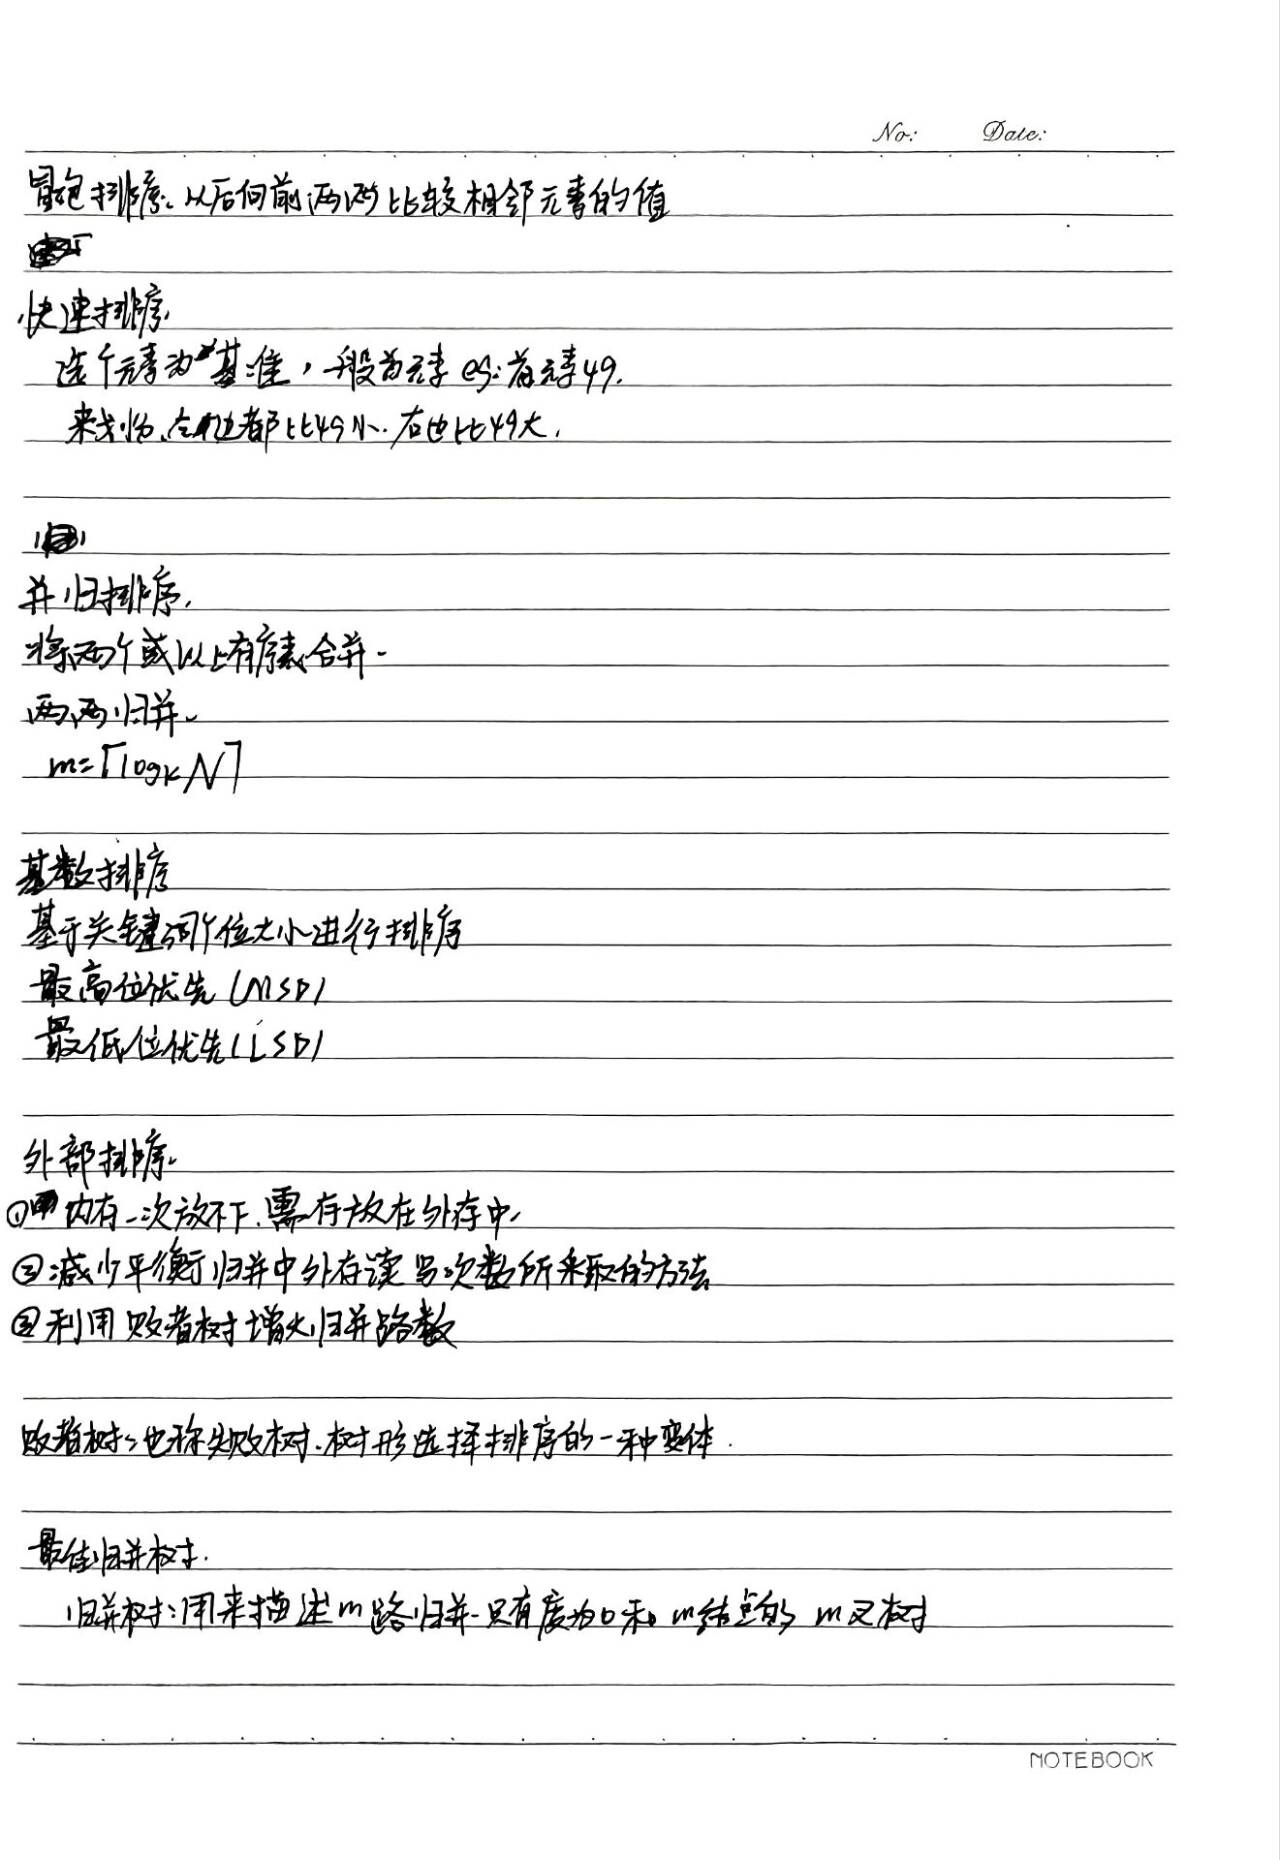 No: Date:
冒泡排序:以后向前两两比较相邻元素的值
快速排序
选个元素为基准,一般首元素 eg:首元素49.
来划分,左边都比49小.右边比49大.
并归排序.
将两个或以上有序表合并.
两两归并.
m=⌈logₖN⌉
基数排序
基于关键词个位大小进行排序
最高位优先(MSD)
最低位优先(LSD)
外部排序.
①内存一次放不下.需存放在外存中.
②减少平衡归并中外存读写次数所采取的方法
③利用败者树增大归并路数
败者树:也称失败树.树形选择排序的一种变体.
最佳归并树.
归并树:用来描述m路归并.只有度为0和m结点的m叉树
NOTEBOOK